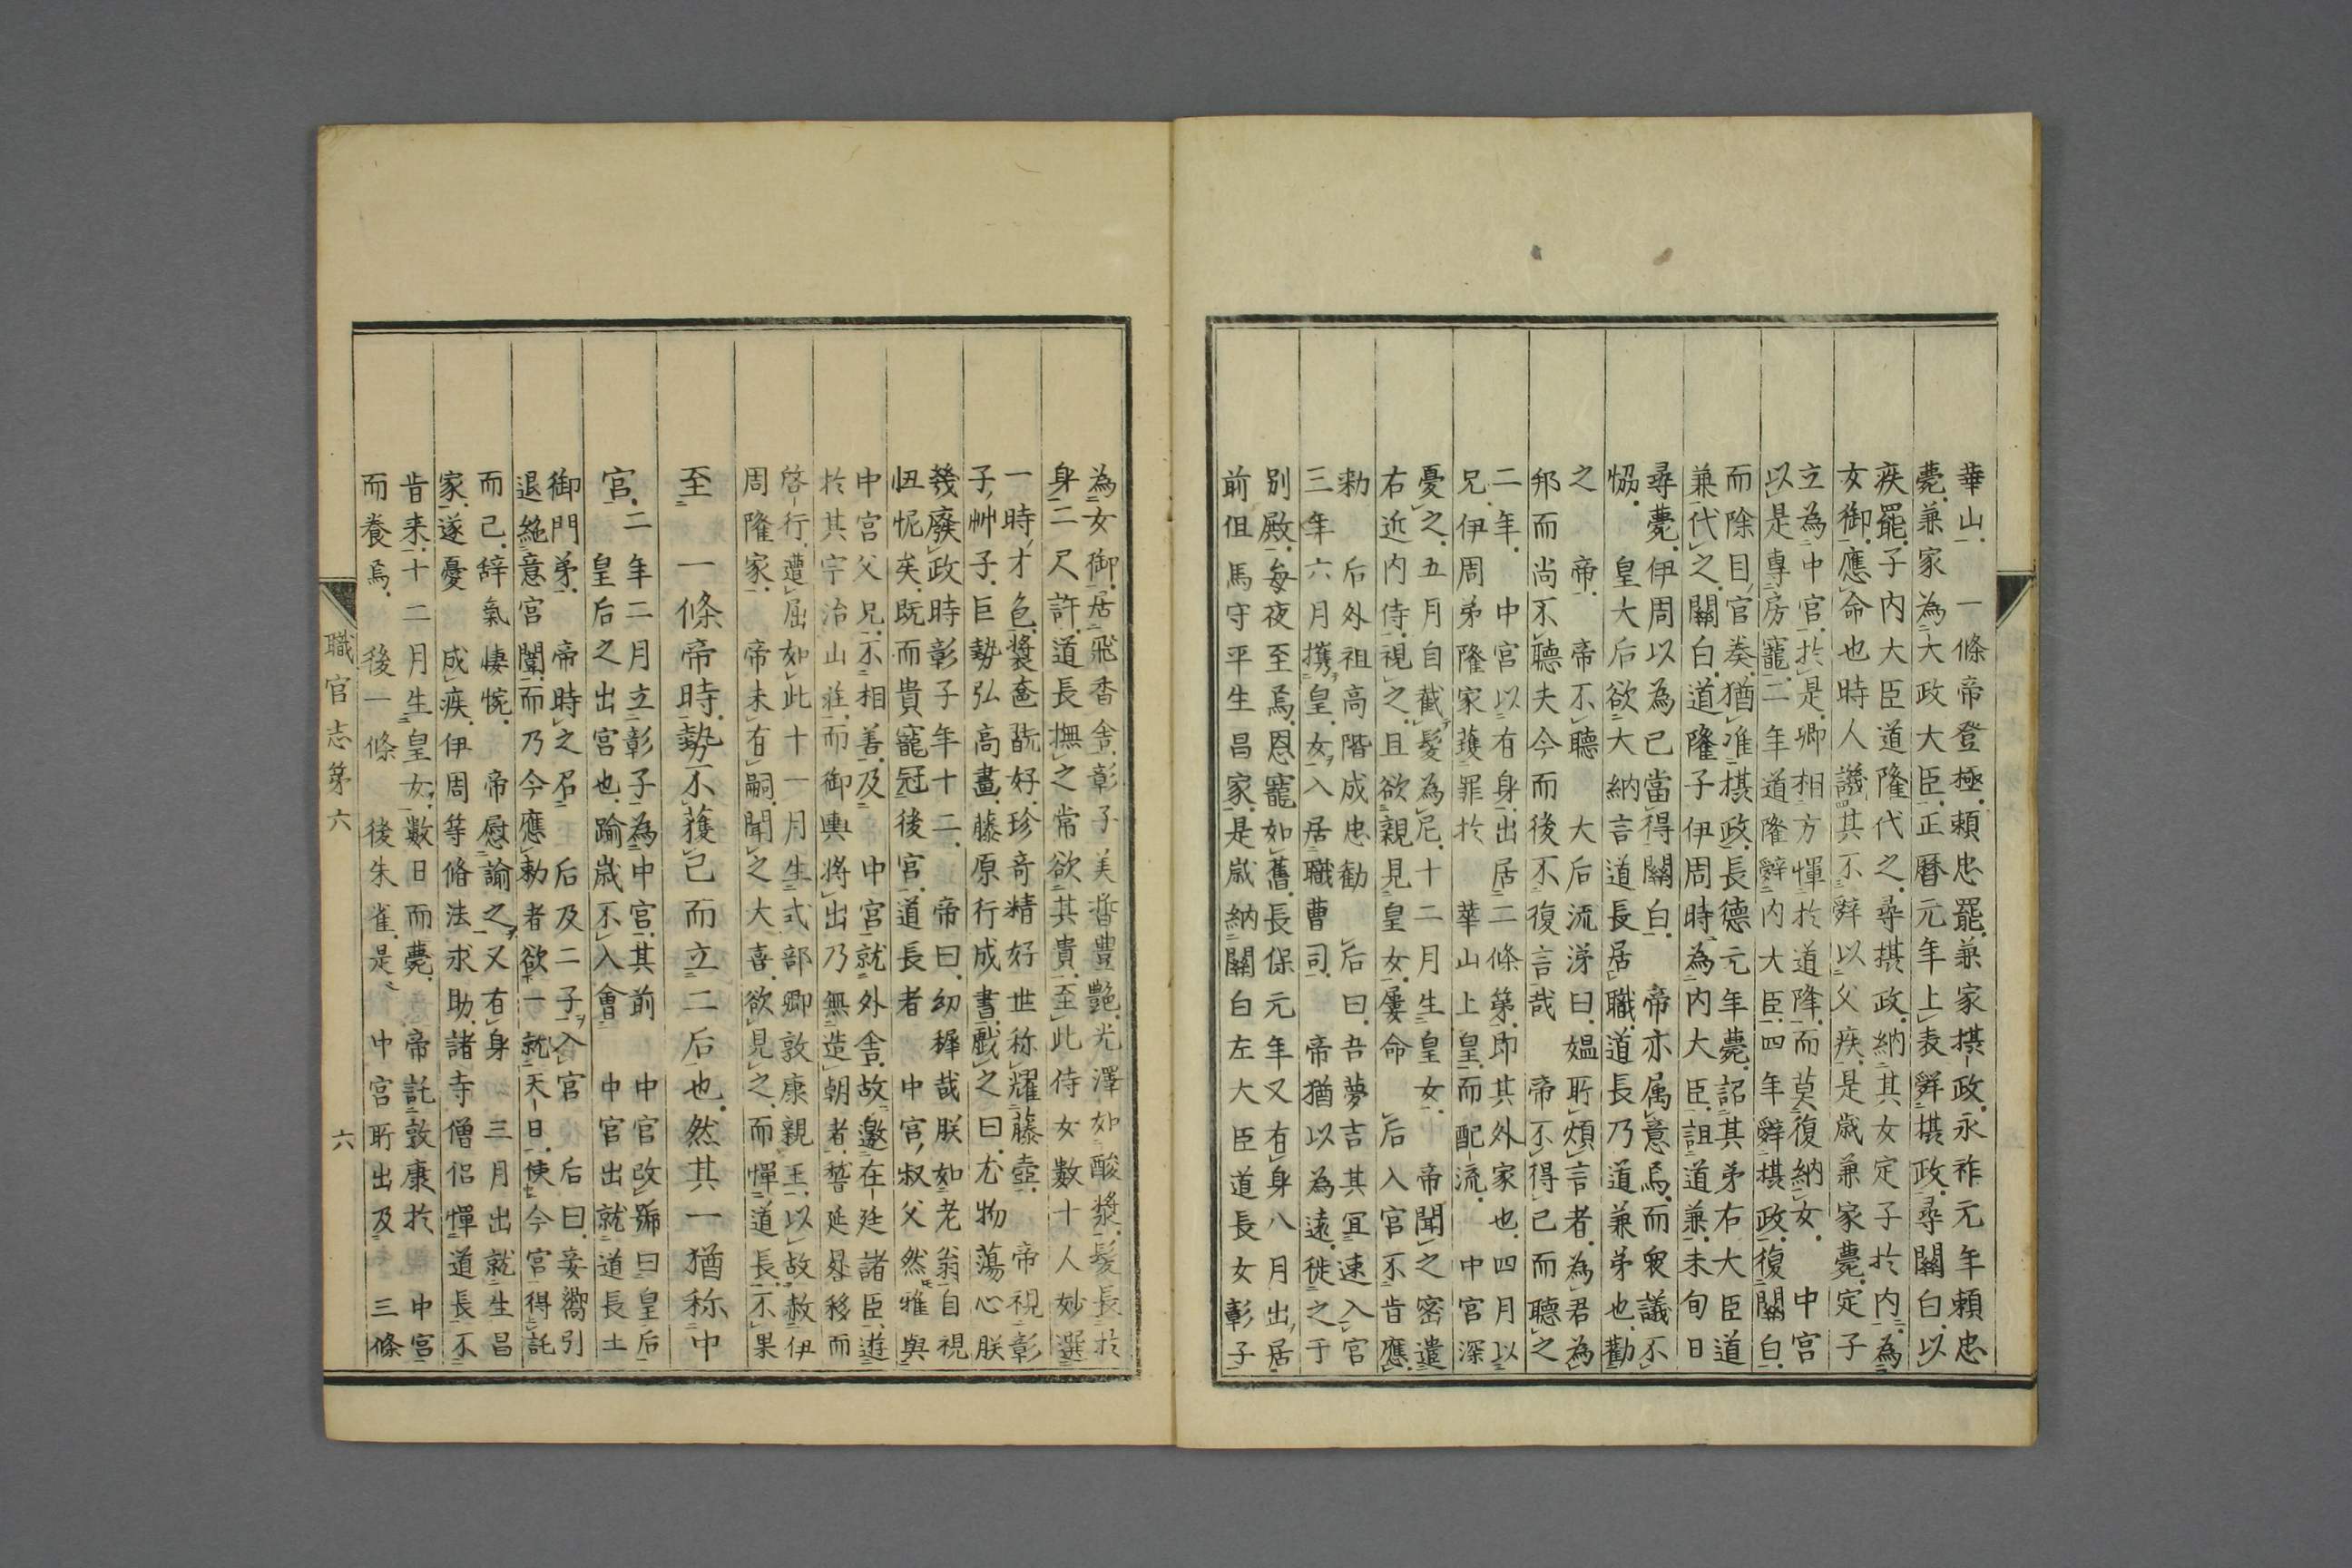 華山一條帝登極賴忠罷兼家摂政永祚元年賴忠
薨兼家為大政大臣正暦元年上表辞摂政尋關白以
疾罷子内大臣道隆代之尋摂政納其女定子於内為
女御應命也時人譏其不辞以父疾是歳兼家薨定子
立為中宮於是卿相方憚於道隆而莫復納女　中宮
以是專房寵二年道隆辞内大臣四年辞摂政復關白
而除目官奏猶准摂政長德元年薨詔其弟右大臣道
兼代之關白道隆子伊周時為内大臣詛道兼未旬日
尋薨伊周以為己當得關白　帝亦属意焉而衆議不
恊　皇大后欲大納言道長居職道長乃道兼弟也勸
之　帝　帝不聽　大后流涕曰媼所煩言者為君為
邦而尚不聽夫今而後不復言哉　帝不得已而聽之
二年　中宮以有身出居二條第即其外家也四月以
兄伊周弟隆家獲罪於　華山上皇而配流　中宮深
憂之五月自截髮為尼十二月生皇女　帝聞之密遣
右近内侍視之且欲親見皇女屢命　后入宮不肯應
勅　后外祖高階成忠勸　后曰吾夢吉其宜速入宮
三年六月攜皇女入居職曹司　帝猶以為遠徙之于
別殿每夜至焉恩寵如舊長保元年又有身八月出居
前但馬守平生昌家是歳納關白左大臣道長女彰子
為女御居飛香舎彰子美晳豊艷光澤如酸漿髮長於
身二尺許道長撫之常欲其貴至此侍女數十人妙選
一時才色裝奩翫好珍奇精好世称耀藤壺　帝視彰
子艸子巨勢弘高畫藤原行成書戲之曰尤物蕩心朕
幾廢政時彰子年十二　帝曰幼穉哉朕如老翁自視
忸怩矣既而貴寵冠後宮道長者　中宮叔父然雅與
中宮父兄不相善及　中宮就外舎故邀在廷諸臣遊
於其宇治山荘而御輿將出乃無造朝者稽延晷移而
啓行遭屈如此十一月生式部卿敦康親王以故赦伊
周隆家　帝未有嗣聞之大喜欲見之而憚道長不果
至一條帝時勢不獲已而立二后也然其一猶称中
宮
二年二月立彰子為中宮其前　中宮改號曰皇后
皇后之出宮也踰歳不入會　中宮出就道長土
御門弟　帝時之召　后及二子入宮　后曰妾嚮引
退絶意宮闈而乃今應勅者欲一就天日使今宮得託
而已辞氣悽惋　帝慰諭之又有身　三月出就生昌
家遂憂　成疾伊周等脩法求助諸寺僧侶憚道長不
肯来十二月生皇女數日而薨　帝託敦康於　中宮
而養焉　後一條　後朱雀是　中宮所出及　三條
職官志第六
六